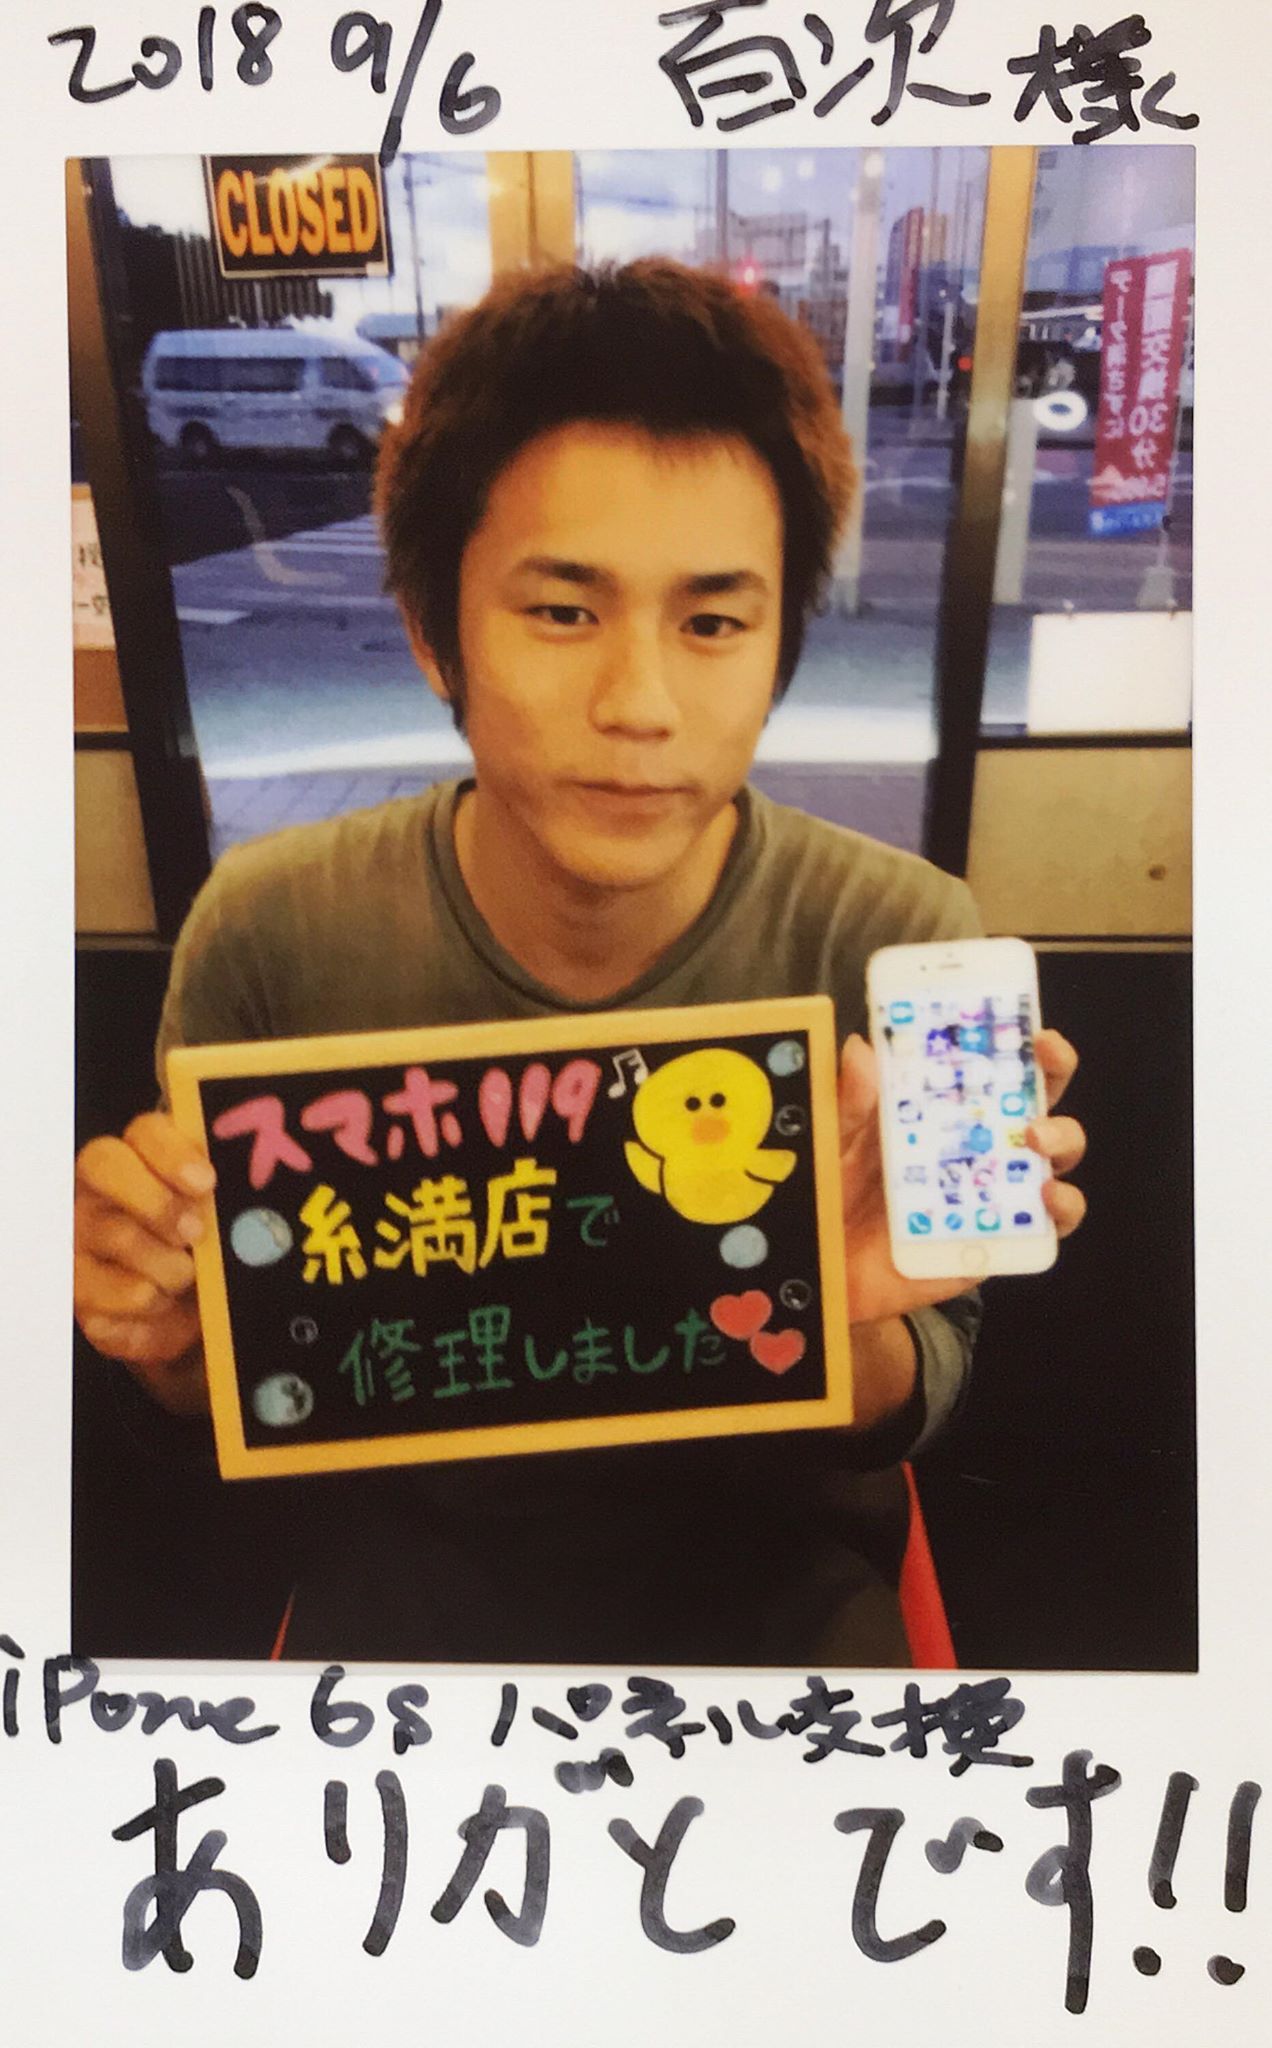 2018 9/6 百次様
CLOSED
スマホ119
糸満店で
修理しました
iPhone 6s パネル交換
ありがとです!!